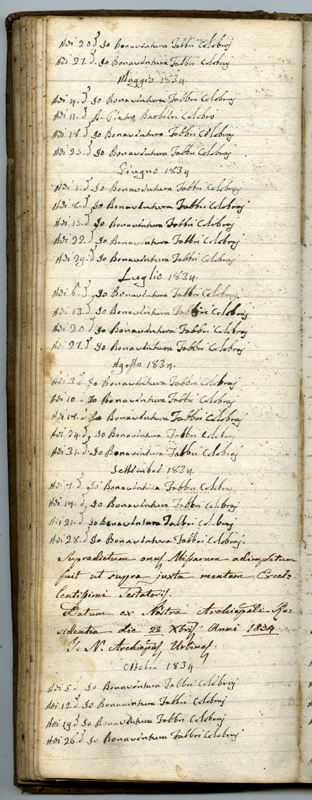 Adi 20 d.º Io Bonaventura Fabbri Celebraj
Adi 27. d.º Io Bonaventura Fabbri Celebraj
Maggio 1834
Adi 4. d.º Io Bonaventura Fabbri Celebraj
Adi 11. d.º P. Pietro Celebro
Adi 18 d.º Io Bonaventura Fabbri Celebraj
Adi 25. d.º Io Bonaventura Fabbri Celebraj
Giugno 1834
Adi 1. d.º Io Bonaventura Fabbri Celebraj
Adi 8. d.º Io Bonaventura Fabbri Celebraj
Adi 15. d.º Io Bonaventura Fabbri Celebraj
Adi 22. d.º Io Bonaventura Fabbri Celebraj
Adi 29. d.º Io Bonaventura Fabbri Celebraj
Luglio 1834.
Adi 6. d.º Io Bonaventura Fabbri Celebraj
Adi 13. d.º Io Bonaventura Fabbri Celebraj
Adi 20. d.º Io Bonaventura Fabbri Celebraj
Adi 27. d.º Io Bonaventura Fabbri Celebraj
Agosto 1834.
Adi 3. d.º Io Bonaventura Fabbri Celebraj
Adi 10. d.º Io Bonaventura Fabbri Celebraj
Adi 17. d.º Io Bonaventura Fabbri Celebraj
Adi 24. d.º Io Bonaventura Fabbri Celebraj
Adi 31. d.º Io Bonaventura Fabbri Celebraj
Settembre 1834
Adi 7. d.º Io Bonaventura Fabbri Celebraj
Adi 14. d.º Io Bonaventura Fabbri Celebraj
Adi 21. d.º Io Bonaventura Fabbri Celebraj
Adi 28. d.º Io Bonaventura Fabbri Celebraj
Supradictum onus Missarum adimpletum
fuit ut supra juxta mentem Excel-
lentissimi Testatoris.
Datum ex Nostra Archiepali Re-
sidentia die 22 Xbris Anni 1834
Archiepus Urbinas
Ottobre 1834
Adi 5. d.º Io Bonaventura Fabbri Celebraj
Adi 12. d.º Io Bonaventura Fabbri Celebraj
Adi 19 d.º Io Bonaventura Fabbri Celebraj
Adi 26 d.º Io Bonaventura Fabbri Celebraj